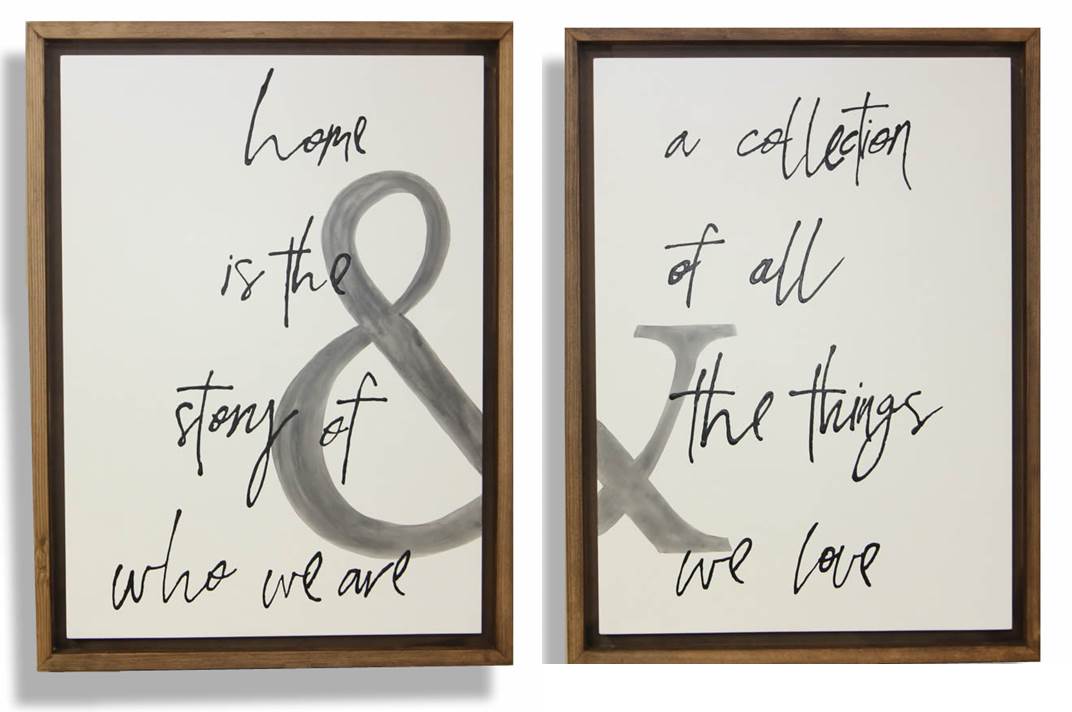 home
is the
story of
who we are
&
a collection
of all
the things
we love